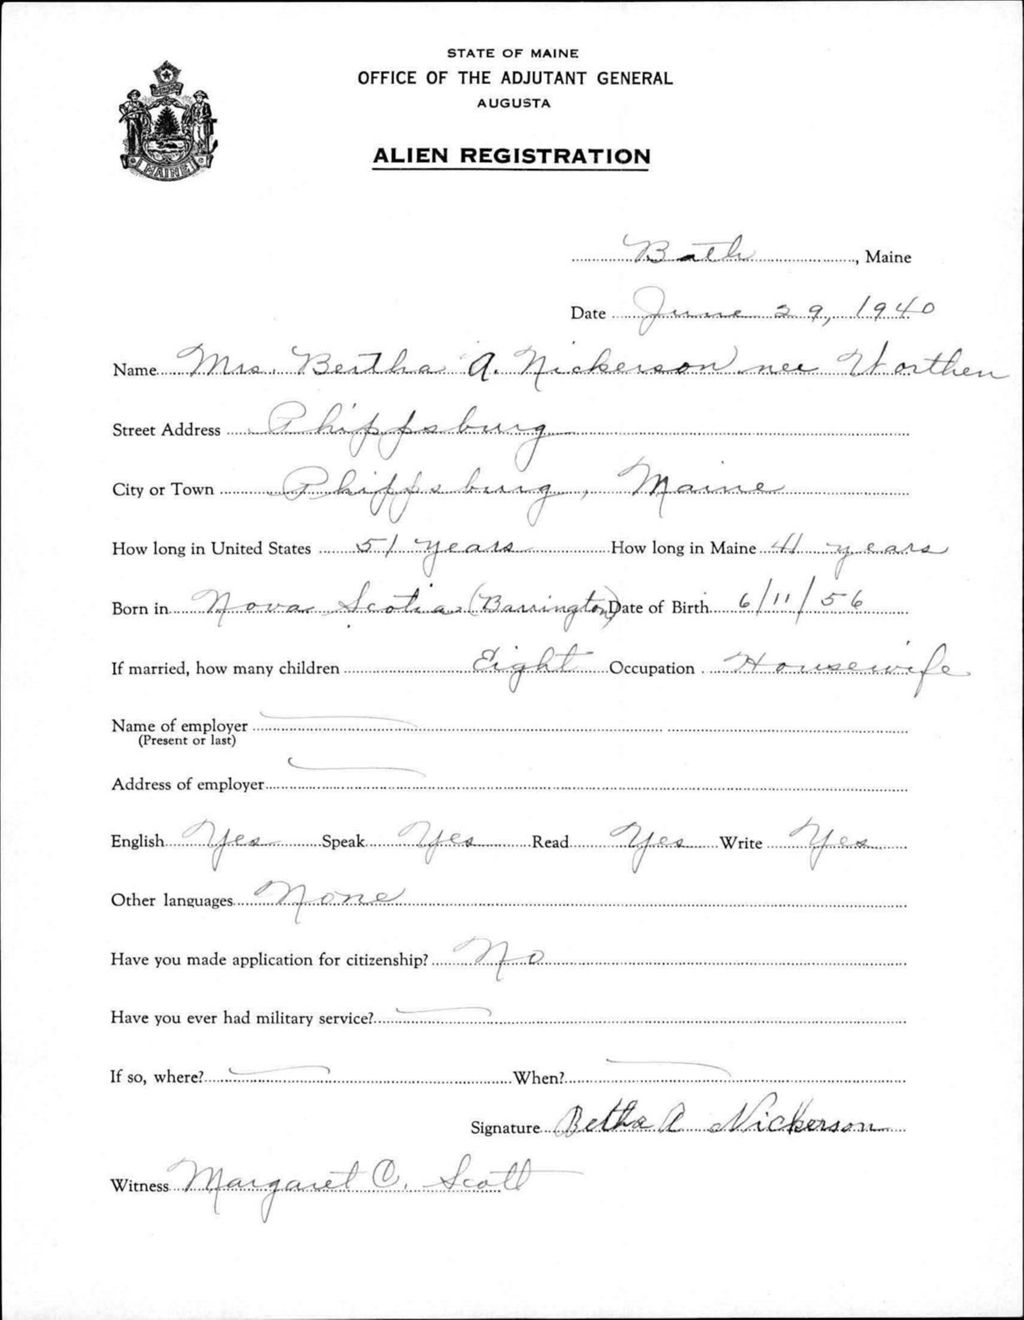 STATE OF MAINE
OFFICE OF THE ADJUTANT GENERAL
AUGUSTA
ALIEN REGISTRATION
MAINE
Bath, Maine
Date June 29, 1940
Name Mrs. Bertha A. Nickerson nee Worthen
Street Address Phippsburg
City or Town Phippsburg, Maine
How long in United States 51 years How long in Maine 41 years
Born in Nova Scotia (Barrington) Date of Birth 6/11/56
If married, how many children Eight Occupation Housewife
Name of employer
(Present or last)
Address of employer
English Yes Speak Yes Read Yes Write Yes
Other languages None
Have you made application for citizenship? No
Have you ever had military service?
If so, where? When?
Signature Betha A Nickerson
Witness Margaret C. Scott